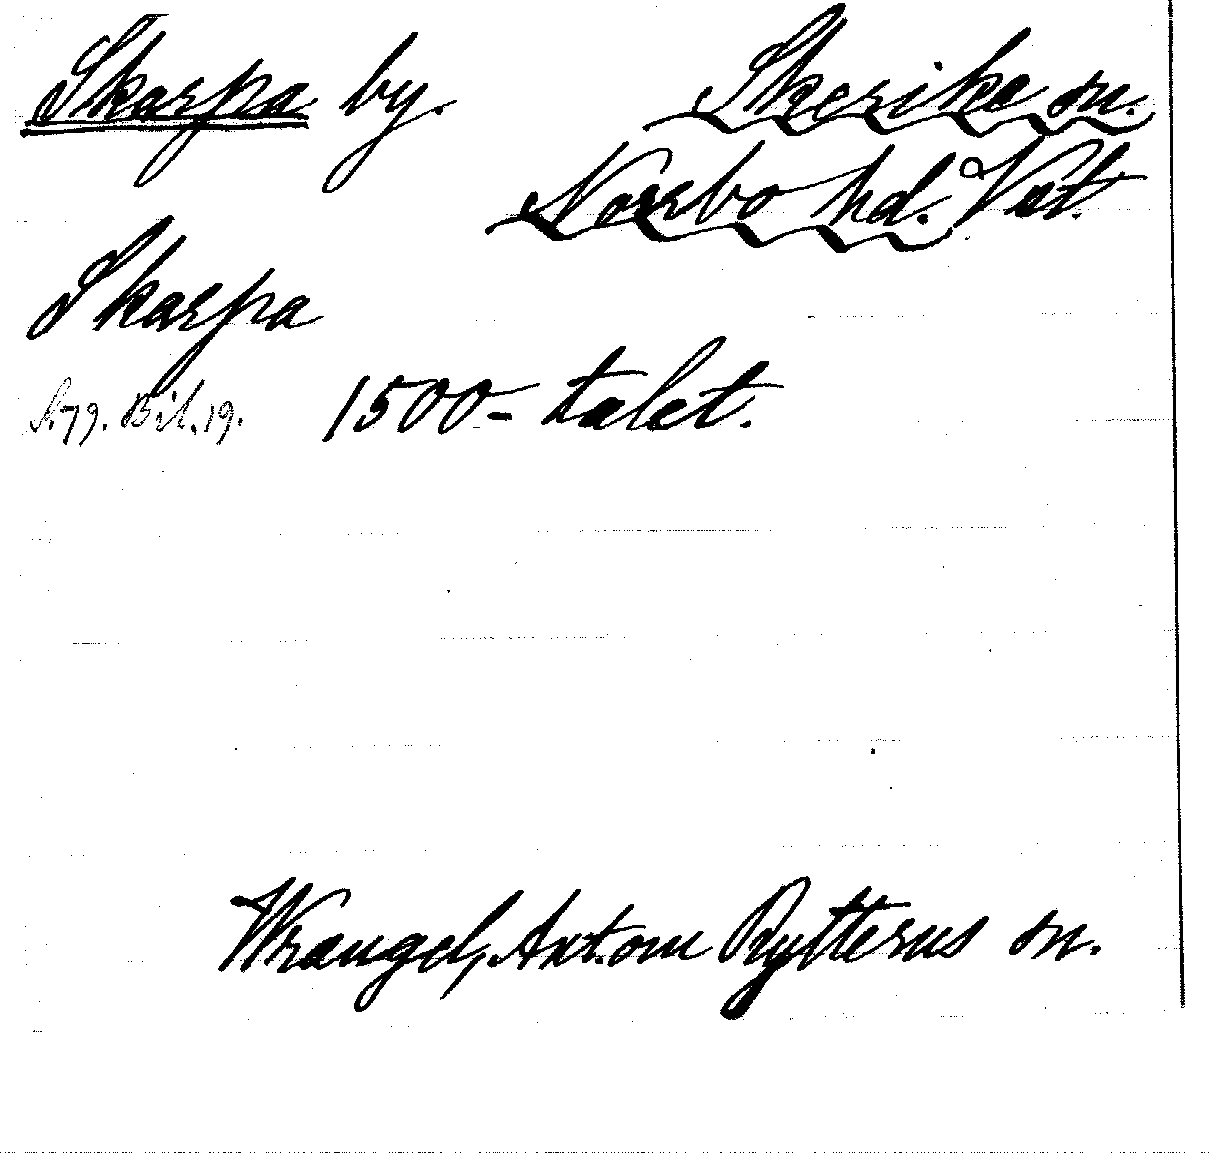 Skarpa by. Skerike sn.
Norrbo hd. Vstm.
Skarpa
S. 79. Bil. 19. 1500-talet.
Wrangel, Ant. om Rytterns sn.